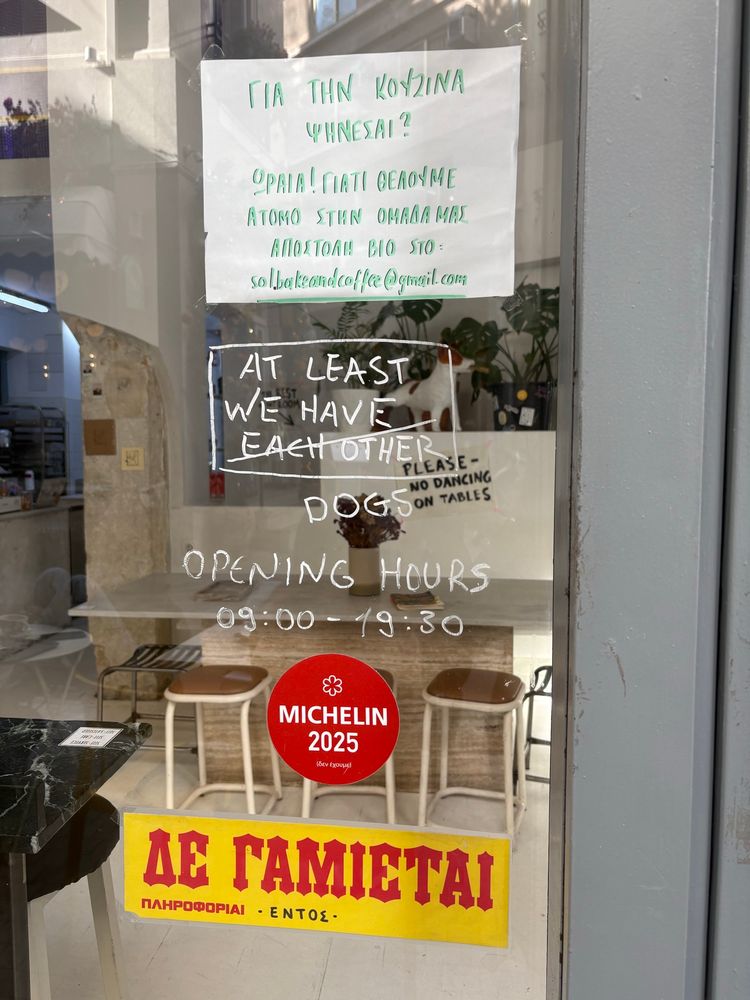 ΓΙΑ ΤΗΝ ΚΟΥΖΙΝΑ
ΨΗΝΕΣΑΙ?
ΩΡΑΙΑ! ΓΙΑΤΙ ΘΕΛΟΥΜΕ
ΑΤΟΜΟ ΣΤΗΝ ΟΜΑΔΑ ΜΑΣ
ΑΠΟΣΤΟΛΗ ΒΙΟ ΣΤΟ:
sol.bakeandcoffee@gmail.com
AT LEAST
WE HAVE
EACH OTHER
DOGS
PLEASE-
NO DANCING
ON TABLES
OPENING HOURS
09:00-19:30
MICHELIN
2025
(δεν έχουμε)
ΔΕ ΓΑΜΙΕΤΑΙ
ΠΛΗΡΟΦΟΡΙΑΙ -ΕΝΤΟΣ-